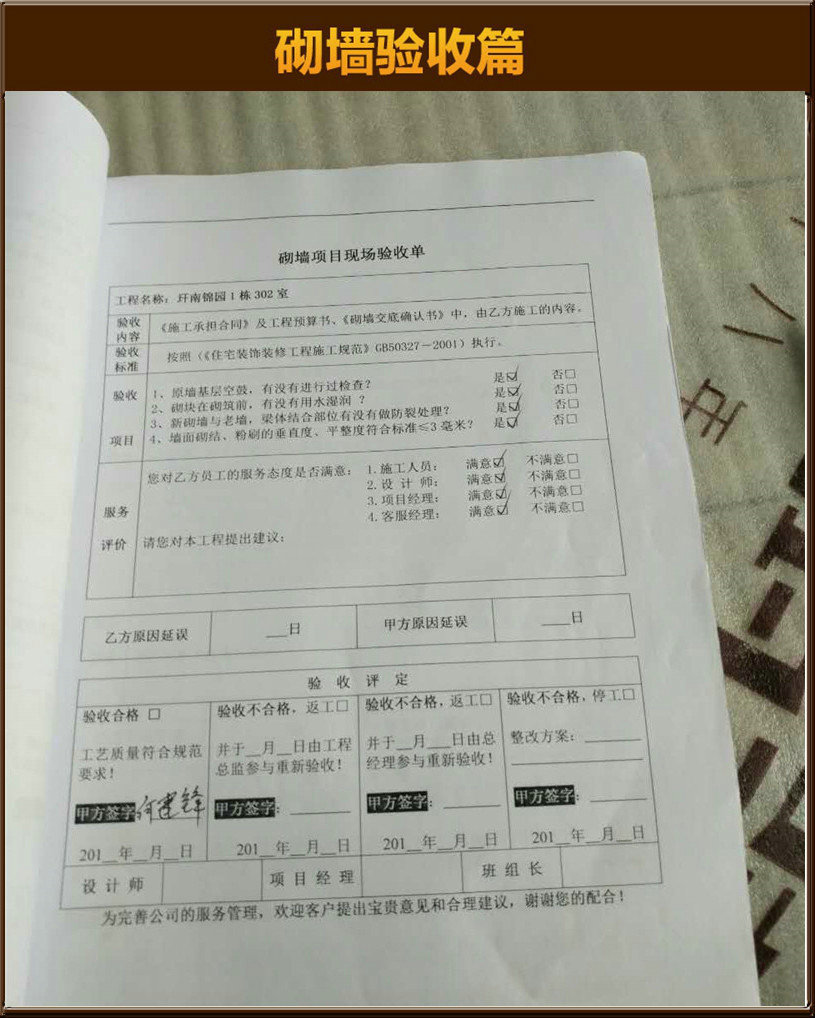 砌墙验收篇
砌墙项目现场验收单
工程名称：玕南锦园1栋302室
验收内容 《施工承担合同》及工程预算书、《砌墙交底确认书》中，由乙方施工的内容。
验收标准 按照（《住宅装饰装修工程施工规范》GB50327－2001）执行。
验收项目
1、原墙基层空鼓，有没有进行过检查？ 是☑ 否□
2、砌块在砌筑前，有没有用水湿润？ 是☑ 否□
3、新砌墙与老墙，梁体结合部位有没有做防裂处理？ 是☑ 否□
4、墙面砌结、粉刷的垂直度、平整度符合标准≤3毫米？ 是☑ 否□
服务评价
您对乙方员工的服务态度是否满意： 1.施工人员： 满意☑ 不满意□
2.设计师： 满意☑ 不满意□
3.项目经理： 满意☑ 不满意□
4.客服经理： 满意☑ 不满意□
请您对本工程提出建议：
乙方原因延误 ___日 甲方原因延误 ___日
验收评定
验收合格 □ 验收不合格，返工□ 验收不合格，返工□ 验收不合格，停工□
工艺质量符合规范 并于__月__日由工程 并于__月___日由总 整改方案：______
要求！ 总监参与重新验收！ 经理参与重新验收！
甲方签字 何建锋 甲方签字：______ 甲方签字：______ 甲方签字：______
201__年__月__日 201__年__月__日 201__年__月__日 201__年__月__日
设计师 项目经理 班组长
为完善公司的服务管理，欢迎客户提出宝贵意见和合理建议，谢谢您的配合！